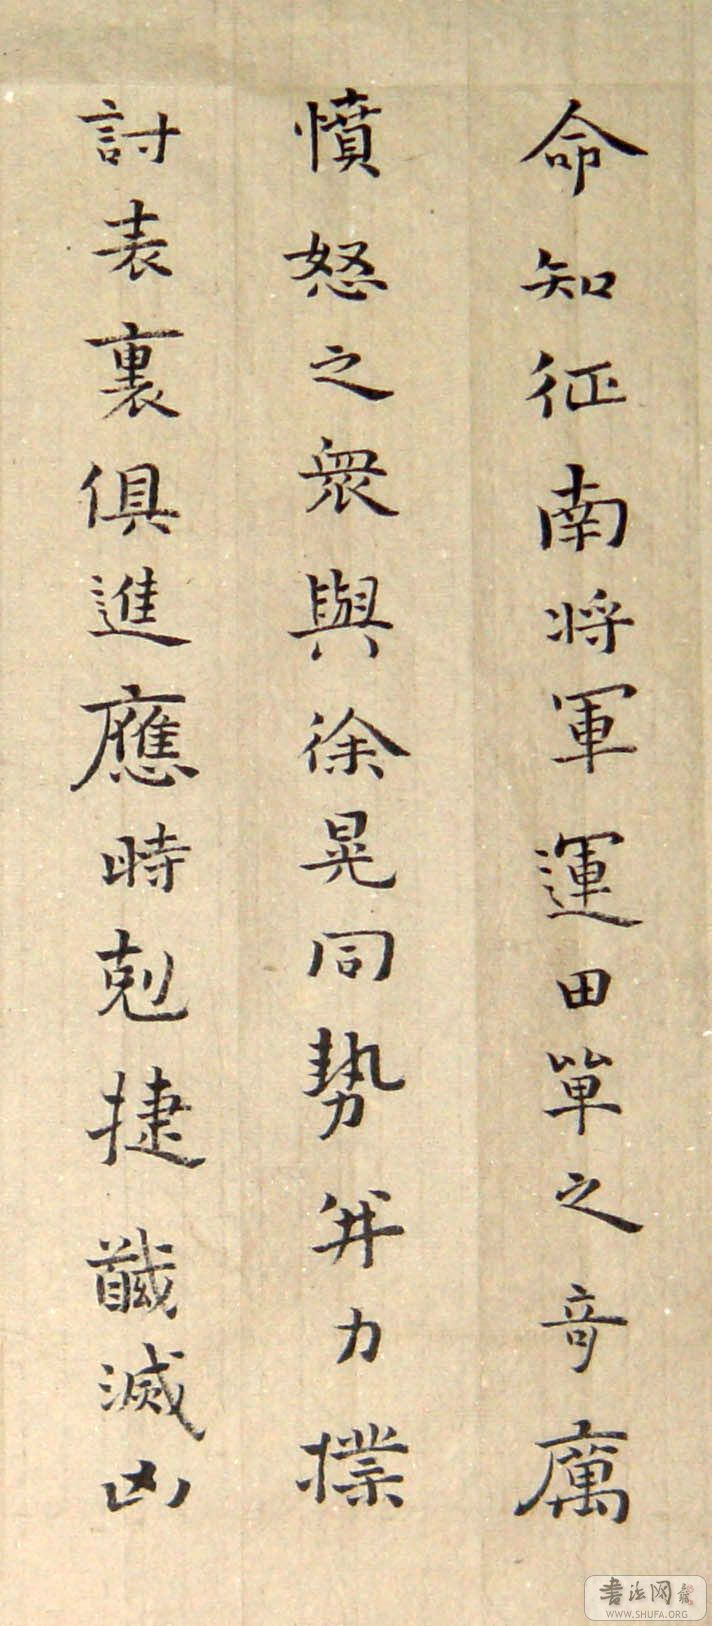 命知征南將軍運田單之奇厲
憤怒之衆與徐晃同勢并力撲
討表裏俱進應時剋捷馘滅凶
书法网
WWW.SHUFA.ORG